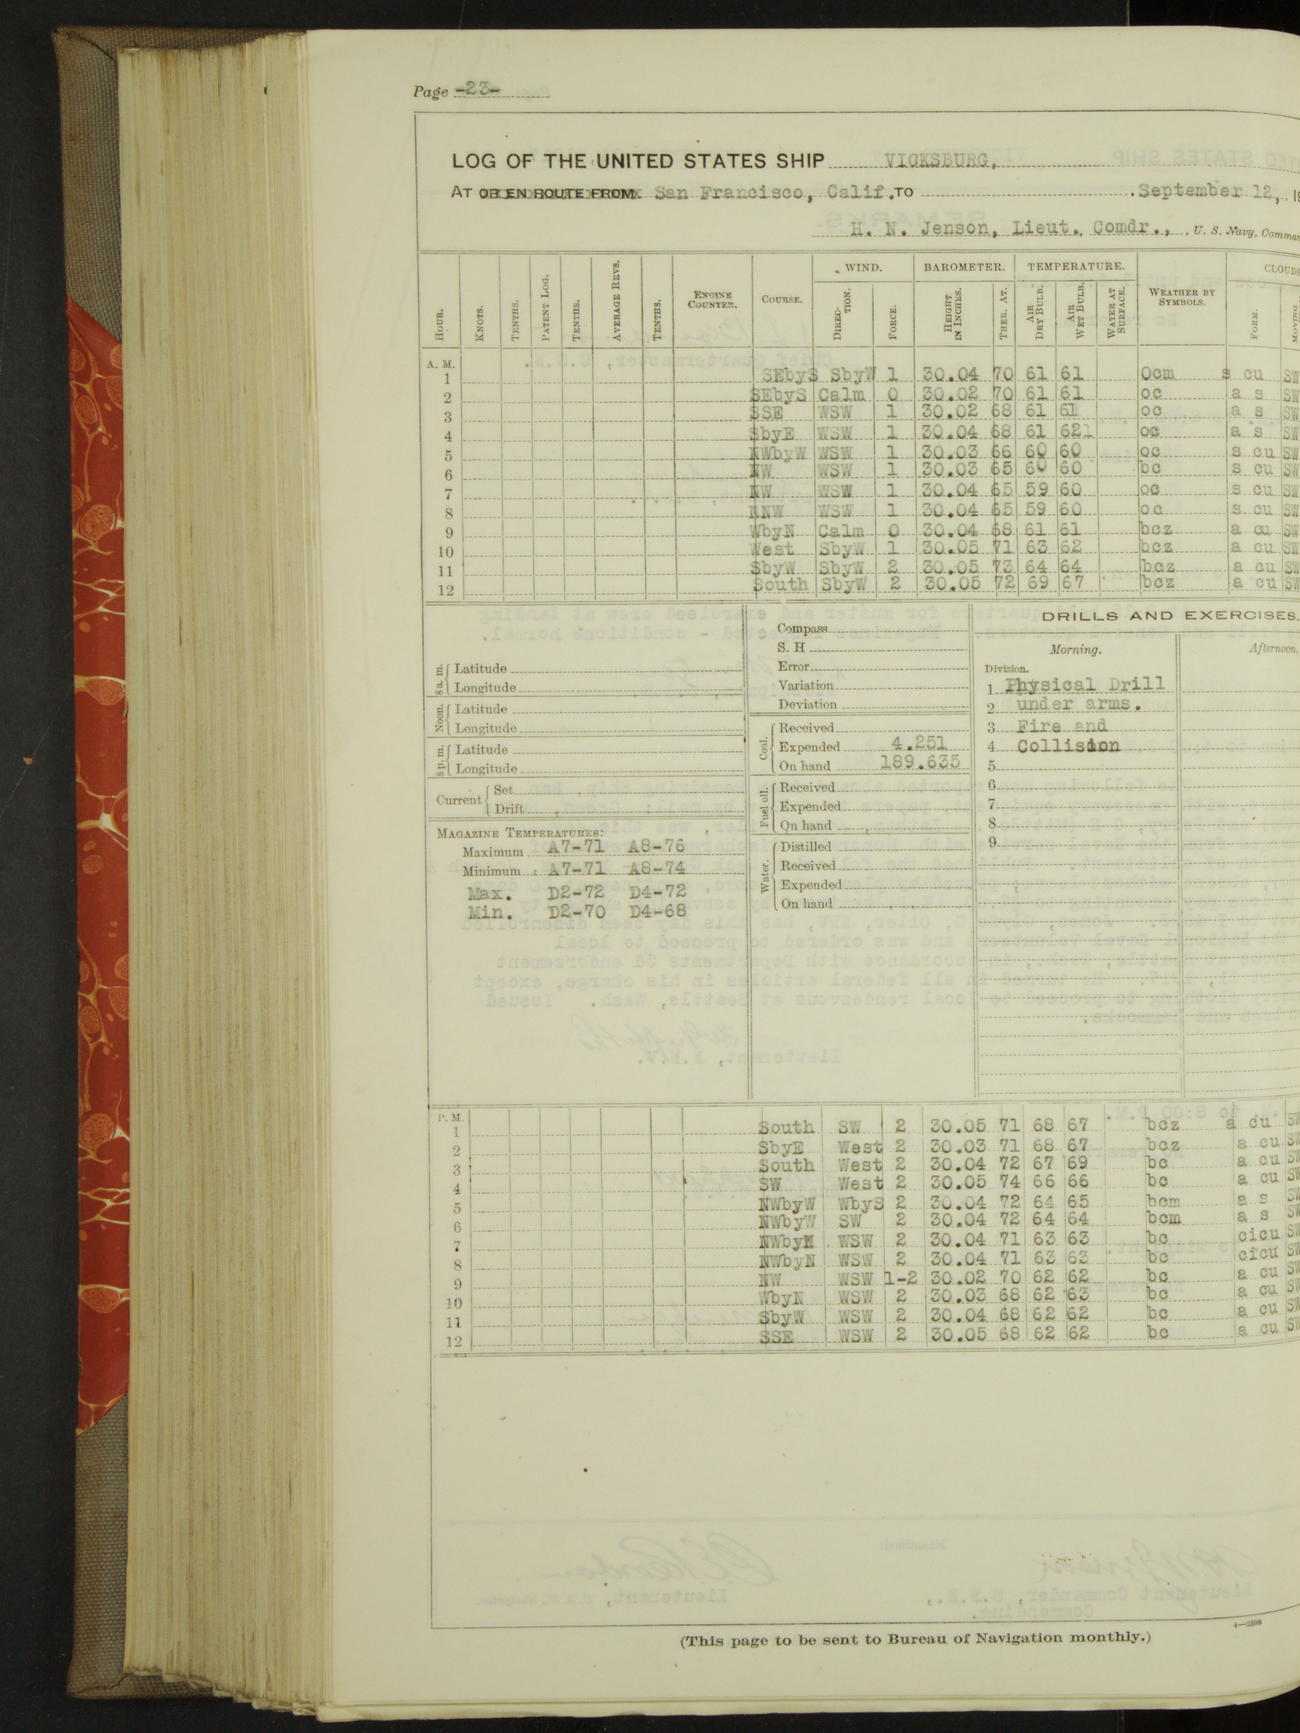 Page -23-
LOG OF THE UNITED STATES SHIP VICKSBURG,
AT OR EN ROUTE FROM San Francisco, Calif. TO September 12, 19
H. N. Jenson, Lieut. Comdr., U. S. Navy, Comman
HOUR. KNOTS. TENTHS. PATENT LOG. TENTHS. AVERAGE REVS. TENTHS. ENGINE COUNTER. COURSE. WIND. DIRECTION. FORCE. BAROMETER. HEIGHT IN INCHES. THER. AT. TEMPERATURE. AIR DRY BULB. AIR WET BULB. WATER AT SURFACE. WEATHER BY SYMBOLS. CLOUDS FORM. MOVING
A. M.
1 SEbyS SbyW 1 30.04 70 61 61 Ocm s cu SW
2 SEbyS Calm 0 30.02 70 61 61 oc a s SW
3 SSE WSW 1 30.02 68 61 61 oc a s SW
4 SbyE WSW 1 30.04 68 61 621 oc a s SW
5 NWbyW WSW 1 30.03 66 60 60 oc s cu SW
6 NW WSW 1 30.03 65 60 60 bc s cu SW
7 NW WSW 1 30.04 65 59 60 oc s cu SW
8 NNW WSW 1 30.04 65 59 60 oc s cu SW
9 WbyN Calm 0 30.04 68 61 61 bcz a cu SW
10 West SbyW 1 30.05 71 63 62 bcz a cu SW
11 SbyW SbyW 2 30.05 73 64 64 bcz a cu SW
12 South SbyW 2 30.05 72 69 67 bcz a cu SW
8 a. m. Latitude
Longitude
Noon. Latitude
Longitude
8 p. m. Latitude
Longitude
Current Set
Drift
MAGAZINE TEMPERATURES:
Maximum A7-71 A8-76
Minimum A7-71 A8-74
Max. D2-72 D4-72
Min. D2-70 D4-68
Compass
S. H
Error
Variation
Deviation
Coal. Received
Expended 4.251
On hand 189.635
Fuel oil. Received
Expended
On hand
Water. Distilled
Received
Expended
On hand
DRILLS AND EXERCISES.
Morning. Afternoon.
Division.
1 Physical Drill
2 under arms.
3 Fire and
4 Collision
5
6
7
8
9
P. M.
1 South SW 2 30.05 71 68 67 bcz a cu SW
2 SbyE West 2 30.03 71 68 67 bcz a cu SW
3 South West 2 30.04 72 67 69 bc a cu SW
4 SW West 2 30.05 74 66 66 bc a cu SW
5 NWbyW WbyS 2 30.04 72 64 65 bcm a s SW
6 NWbyW SW 2 30.04 72 64 64 bcm a s SW
7 NWbyN WSW 2 30.04 71 63 63 bc cicu SW
8 NWbyN WSW 2 30.04 71 63 63 bc cicu SW
9 NW WSW 1-2 30.02 70 62 62 bc a cu SW
10 WbyN WSW 2 30.03 68 62 63 bc a cu SW
11 SbyW WSW 2 30.04 68 62 62 bc a cu SW
12 SSE WSW 2 30.05 68 62 62 bc a cu SW
4—2599
(This page to be sent to Bureau of Navigation monthly.)